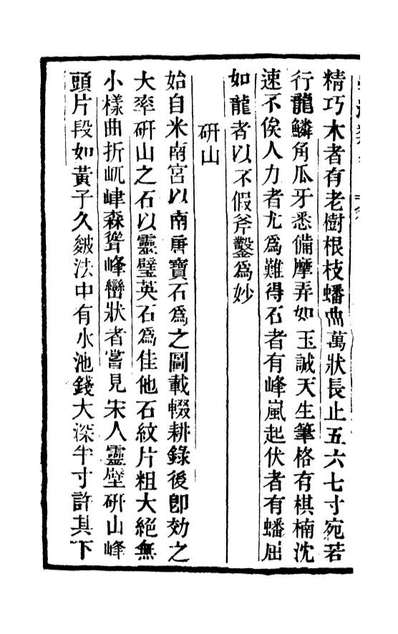 精巧木者有老樹根枝蟠曲萬狀長止五六七寸宛若
行龍鱗角瓜牙悉備摩弄如玉誠天生筆格有棋楠沈
速不俟人力者尤爲難得石者有峰嵐起伏者有蟠屈
如龍者以不假斧鑿爲妙
硏山
始自米南宮以南唐寶石爲之圖載輟耕錄後卽効之
大率硏山之石以靈璧英石爲佳他石紋片粗大絕無
小樣曲折屼峍森聳峰巒狀者嘗見宋人靈璧硏山峰
頭片段如黃子久皴法中有水池錢大深半寸許其下